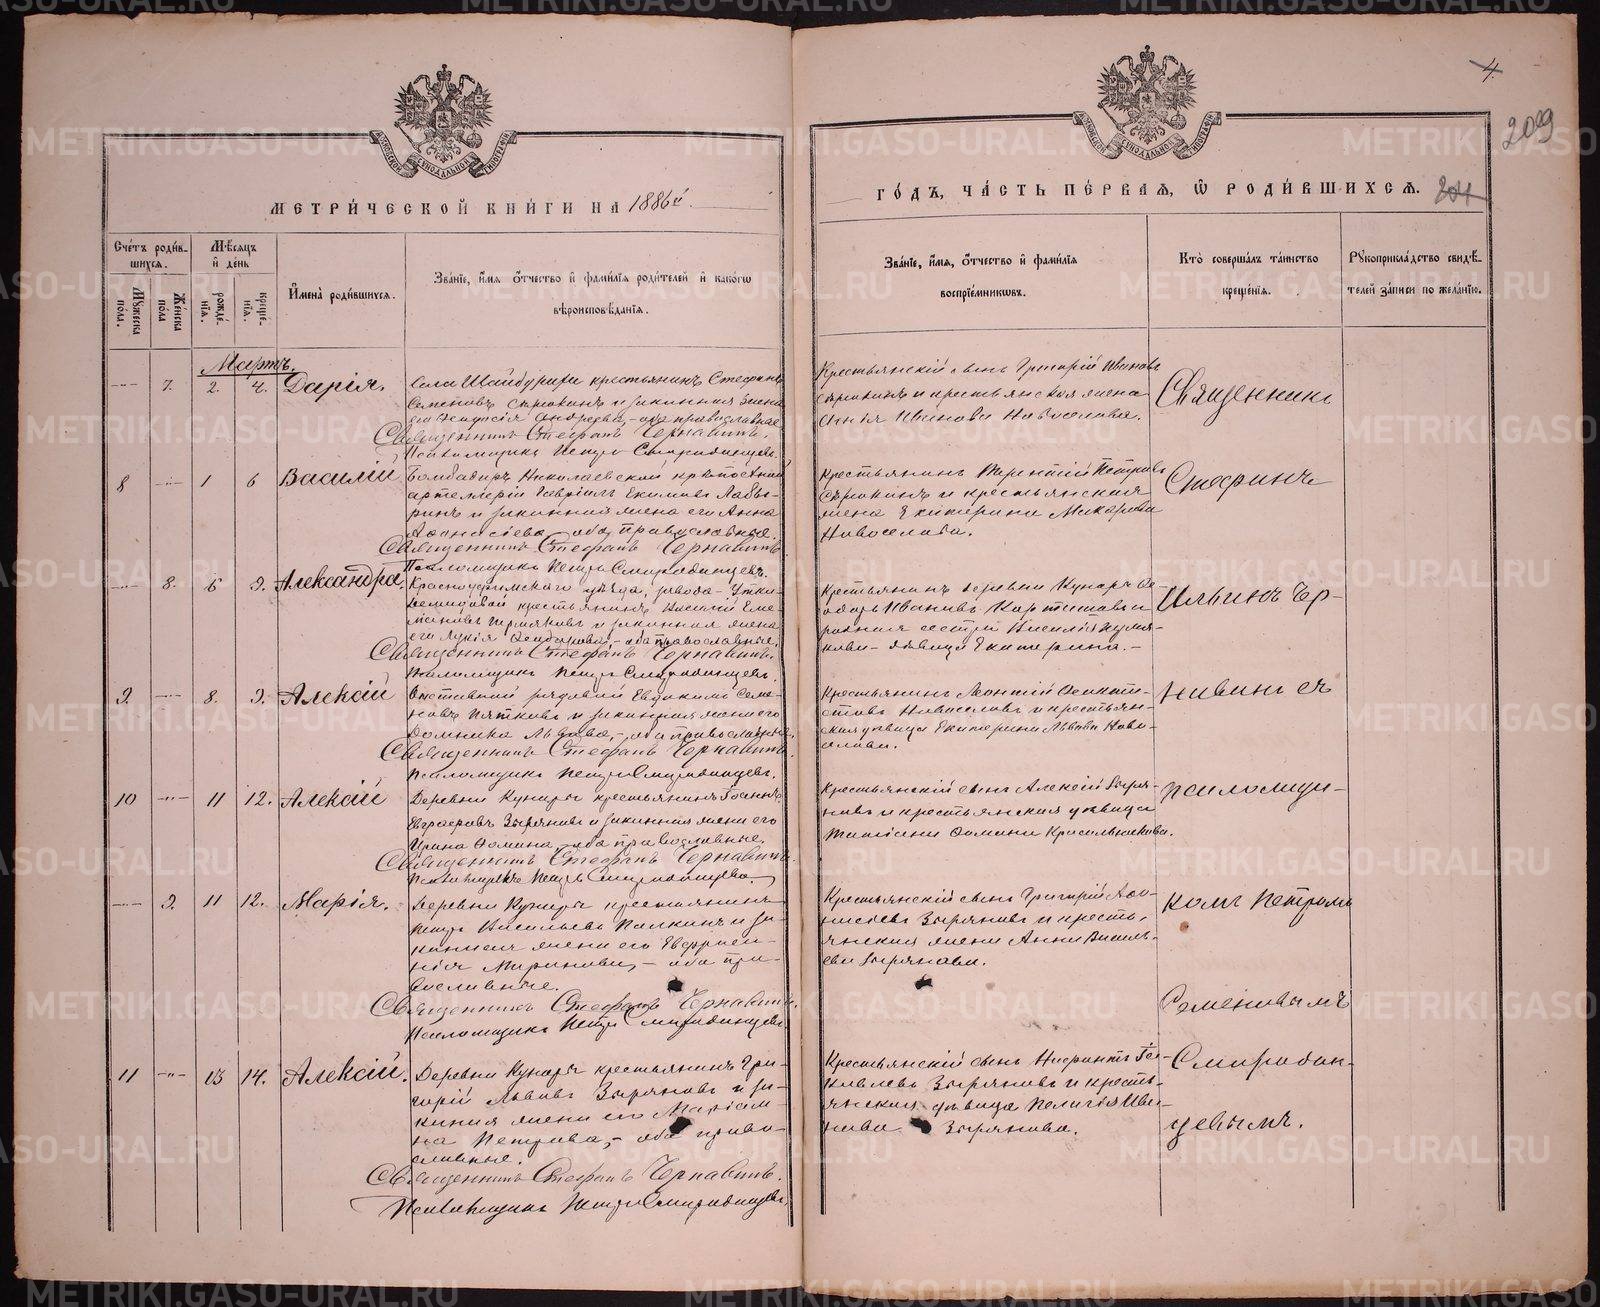 МЕТРИ́ЧЕСКОЙ КНИ́ГИ НА 1886й
ГО́ДЪ, ЧА́СТЬ ПЕ́РВАЯ, Ѿ РОДИ́ВШИХСЯ.
4
209
Сче́тъ роди́в-
шихся.
Мѣ́сяцъ
и҆ де́нь
Му́жеска
по́ла.
Же́нска
по́ла
рожде́-
нїя.
креще́-
нїя.
И҆мена̀ роди́вшихся.
Зва́нїе, и҆́мя ѻ҆́тчество и҆ фами́лїя роди́телей и҆ како́гѡ
вѣроисповѣ́данїя.
Зва́нїе, и҆́мя, ѻ҆́тчество и҆ фами́лїя
воспрїе́мникѡвъ.
Кто̀ соверша́лъ та́инство
креще́нїя.
Рꙋкоприкла́дство свидѣ́-
телей за́писи по жела́нїю.
Мартъ.
7. 2. 4. Дарія.
Села Шайдурихи крестьянинъ Стефанъ
Семеновъ Сѣрковъ и законная жена
его Андреева, - оба православные
Священникъ Стефанъ Чернавинъ.
Псаломщикъ Петръ Смиродинцевъ.
Крестьянскій сынъ Григорій Ивановъ
и крестьянская жена
Иванова Новоселова.
Священникъ
8 1 6 Василій
Бомбадиръ Николаевской крѣпостной
артеллеріи Гавріилъ Екимовъ
и законная жена его Анна
Аѳанасіева оба православные.
Священникъ Стефанъ Чернавинъ.
Псаломщикъ Петръ Смиродинцевъ.
Крестьянинъ Терентій Петровъ
и крестьянская
жена Екатерина Макарова
Новоселова.
Стефанъ
8. 5 9. Александра.
Красноуфимскаго уѣзда, завода Утки
Демидовой крестьянинъ Василій Еме-
ляновъ и законная жена
его Ѳеодорова, - оба православные.
Священникъ Стефанъ Чернавинъ.
Псаломщикъ Петръ Смиродинцевъ.
Крестьянинъ деревни Кунары Ѳе-
одоръ Ивановъ и
родная сестра Василія
дѣвица Екатерина. -
Ильинъ Чер-
9. 8. 9. Алексій
Отставной рядовой Евдокимъ Семе-
новъ Пятковъ и законная жена его
Домника Львова, - оба православные.
Священникъ Стефанъ Чернавинъ
Псаломщикъ Петръ Смиродинцевъ.
Крестьянинъ Леонтій
Новоселовъ и крестьян-
ская дѣвица Екатерина Львова Ново-
селова.
навинъ съ
10 11 12. Алексій
Деревни Кунары крестьянинъ Іоаннъ
Евграфовъ Зыряновъ и законная жена его
Ирина Ѳомина, оба православные.
Священникъ Стефанъ Чернавинъ.
Псаломщикъ Петръ Смиродинцевъ.
Крестьянскій сынъ Алексій Зыря-
новъ и крестьянская дѣвица
Татіана Ѳомина Красильникова.
псаломщи-
9. 11 12. Марія.
Деревни Кунары крестьянинъ
Петръ Васильевъ Палкинъ и за-
конная жена его Евфроси-
нія Миронова, - оба пра-
вославные.
Священникъ Стефанъ Чернавинъ.
Псаломщикъ Петръ Смиродинцевъ
Крестьянскій сынъ Григорій Аѳа-
насіевъ Зыряновъ и кресть-
янская жена Анна Василь-
ева Зырянова.
комъ Петромъ
Семеновымъ
11 13 14. Алексій.
Деревни Кунары крестьянинъ Гри-
горій Львовъ Зыряновъ и за-
конная жена его Маріам-
на Петрова, - оба право-
славные.
Священникъ Стефанъ Чернавинъ.
Псаломщикъ Петръ Смиродинцевъ.
Крестьянскій сынъ Іа-
ковлевъ Зыряновъ и кресть-
янская дѣвица Пелагія Ива-
нова Зырянова.
Смиродин-
цевымъ.
METRIKI.GASO-URAL.RU